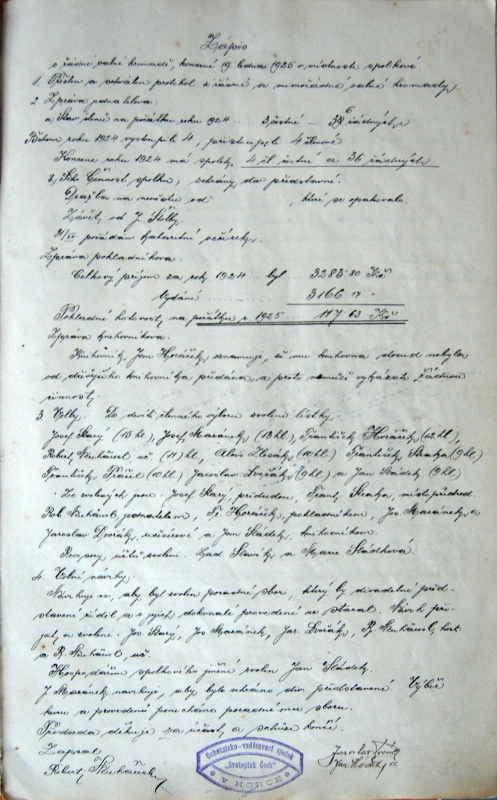 Zápis
o řádné valné hromadě, konané 19. ledna 1925 v místnosti spolkové
1. Přečten a schválen protokol z řádné a mimořádné valné hromady.
2. Zpráva jednatelova.
a Stav členů na počátku roku 1924 3 čestné
Během roku 1924 vystoupili 4, přistoupili 4 členové
Koncem roku 1924 má spolek, 4 čl. čestné a 36 řádných.
činnost spolku, sehrány dvě představení.
na nevěstu od , které se opakovalo.
Závěť od J. Štolby.
31/XII pořádán kabaretní večírek.
Zpráva pokladníkova.
Celkový příjem za rok 1924 byl 3283 80 Kč
Vydání 3166 17
Pokladní hotovost na počátku r. 1925 117 63 Kč
Zpráva knihovníkova.
Knihovník Jan Horáček oznamuje, že mu knihovna dosud nebyla
od dřívějšího knihovníka předána a proto nemůže vykázati žádnou
činnost.
3. Volby. Do členného výboru zvoleni lístky.
Josef Starý (15 hl.), Josef Maránek (13 hl.), František Horáček (12 hl.),
Robert uč. (11 hl.), Alois (10 hl.) František Straka (9 hl.)
František (10 hl.) Jaroslav Dvořák (9 hl.) a Jan Sládek (9 hl.)
Ze zvolených jsou Josef Starý, předsedou, Frant. Straka, místopředsed.
Rob. jednatelem, Fr. Horáček, pokladníkem, Jos. Maránek a
Jaroslav Dvořák, režiséry a Jan Sládek, knihovníkem.
Revisory účtů zvoleni Slavík a Marie Sládková.
4. Volné návrhy.
Navrhuje se, aby byl zvolen poradní sbor, který by divadelní před-
stavení řídil a o jejich dokonalé provedení se staral. Návrh při-
jat a zvoleni Jos. Starý, Jos. Maránek, Jar. Dvořák, R. host.
a R. uč.
Hospodářem spolkového jmění zvolen Jan Sládek.
J. Maránek navrhuje, aby bylo sehráno div. představení. Výběr
kusu a provedení ponecháno poradnímu sboru.
Předseda děkuje za účast a schůze končí.
Zapsal
Robert
Ochotnicko-vzdělávací spolek
"Svatopluk Čech"
V HORCE
Jaroslav
Jan